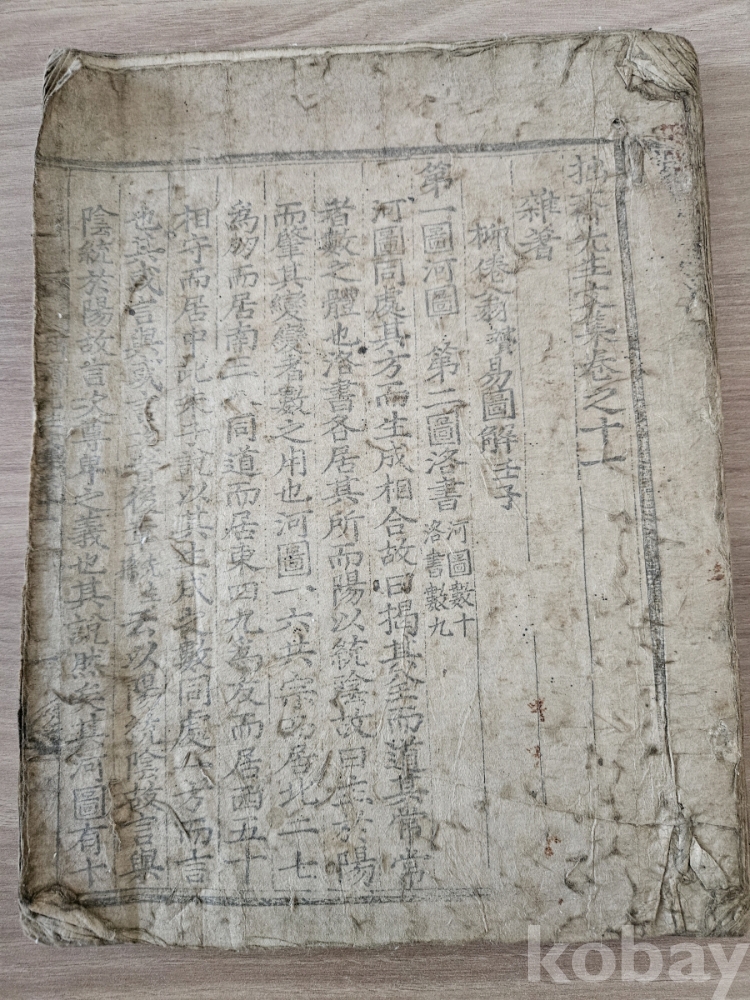 拙齋先生文集卷之十一
雜著
柳倦翁讀易圖解 壬子
第一圖河圖 第二圖洛書 河圖數十 洛書數九
河圖同處其方而生成相合故曰揭其全而道其常常
者數之體也洛書各居其所而陽以統陰故曰志於陽
而肇其變變者數之用也河圖一六共宗而居北二七
為朋而居南三八同道而居東四九為友而居西五十
相守而居中此朱子說以其生成之數同處其方而言
也其或言與或言者後 以陽統陰故言與
陰統於陽故言 尊卑之義也其說 矣其河圖有十
kobay